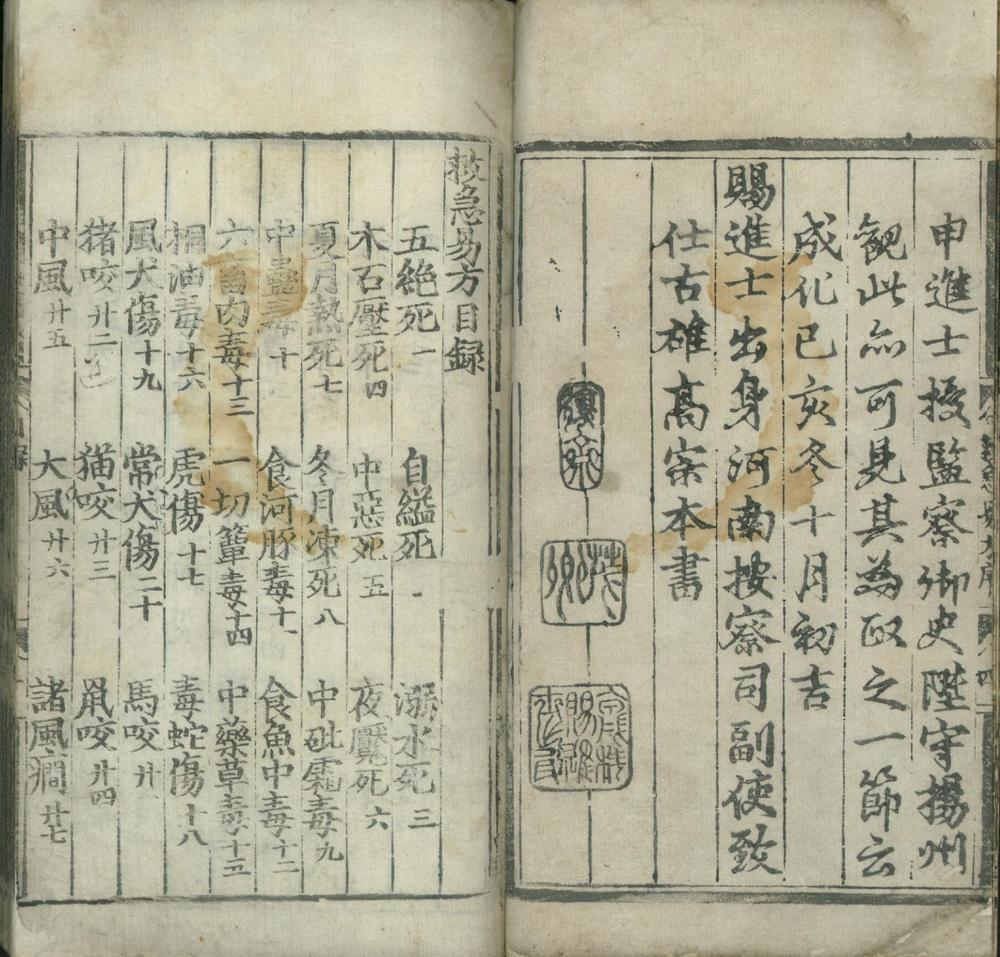 申進士授監察御史陞守揚州
觀此亦可見其為政之一節云
成化己亥冬十月初吉
賜進士出身河南按察司副使致
仕古雄高宗本書
救急易方目録
五絶死一 自縊死 溺水死三
木石壓死四 中惡死五 夜魘死六
夏月熱死七 冬月凍死八 中砒霜毒九
中蠱毒十 食河豚毒十一 食魚中毒十二
六畜肉毒十三 一切蕈毒十四 中藥草毒十五
桐油毒十六 虎傷十七 毒蛇傷十八
風犬傷十九 常犬傷二十 馬咬廿一
猪咬廿二 猫咬廿三 鼠咬廿四
中風廿五 大風廿六 諸風癇廿七